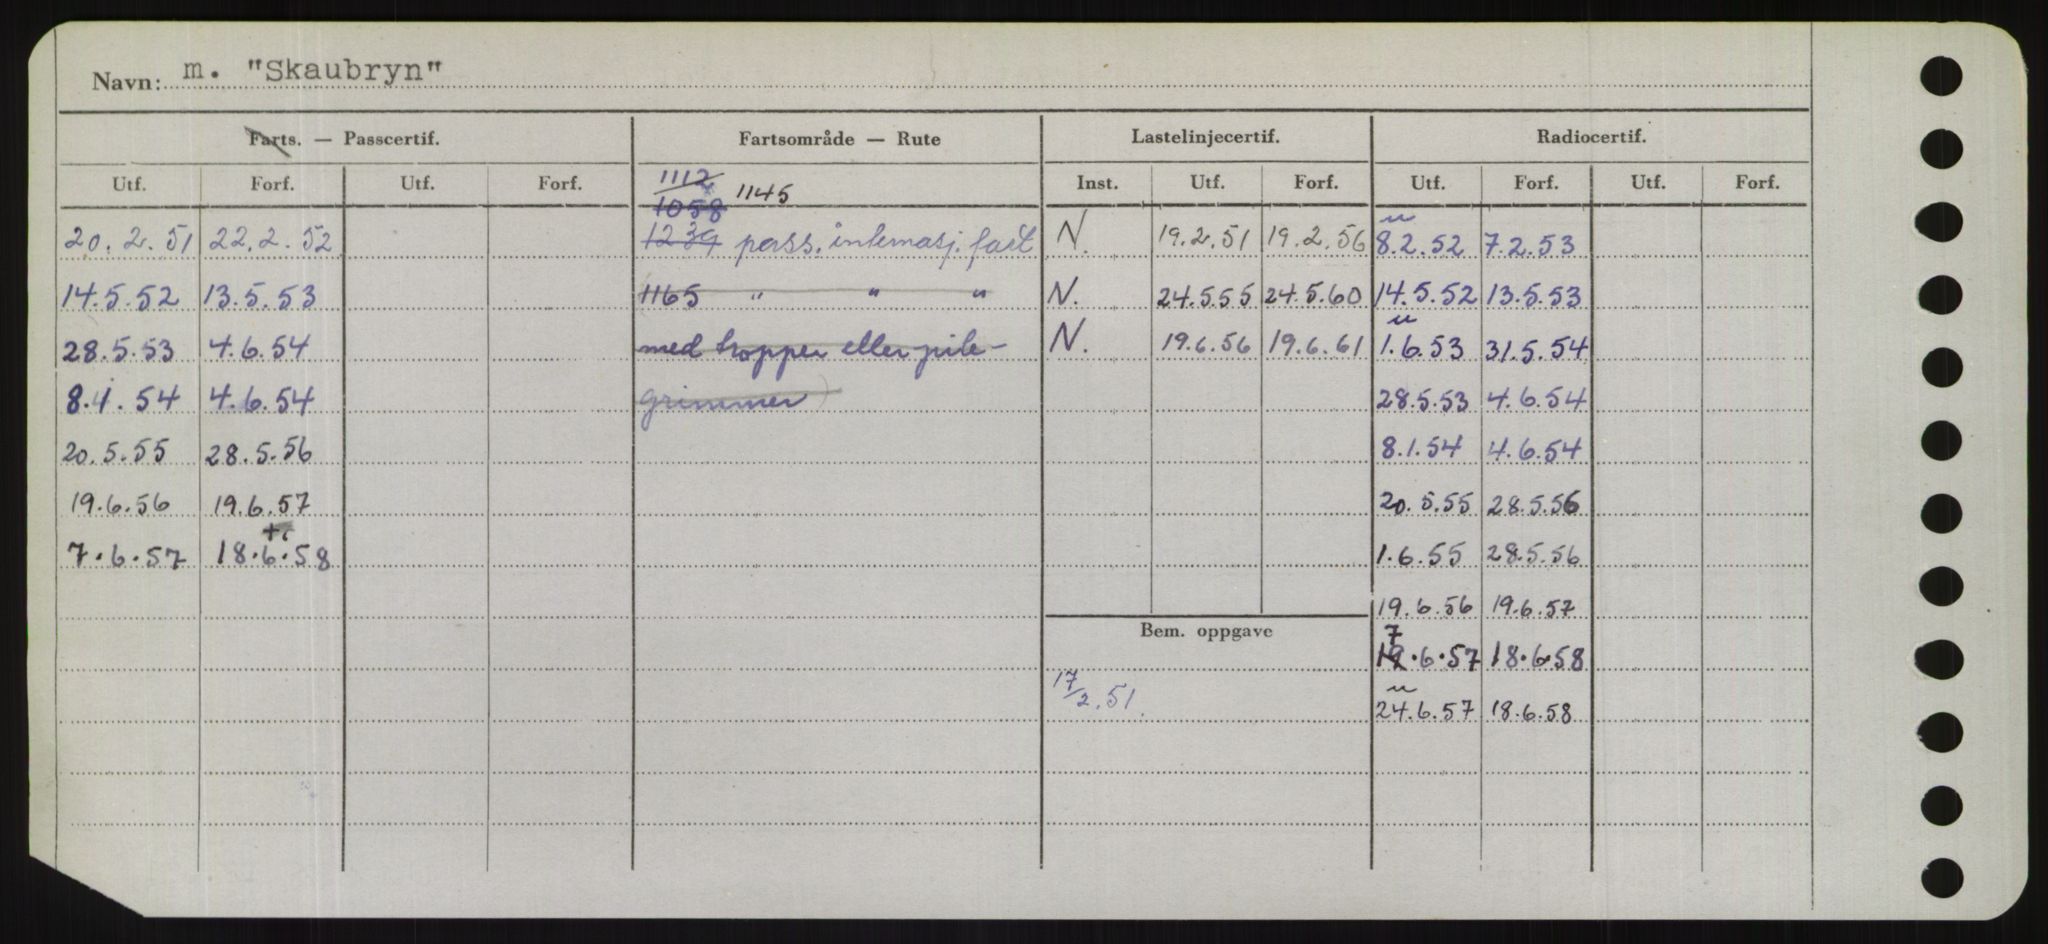 Navn: m. "Skaubryn"
Farts. — Passcertif. Fartsområde — Rute Lastelinjecertif. Radiocertif.
Utf. Forf. Utf. Forf. 1112 1145 Inst. Utf. Forf. Utf. Forf. Utf. Forf.
1058
20.2.51 22.2.52 1239 pass. internasj. fart N. 19.2.51 19.2.56 8.2.52 7.2.53
14.5.52 13.5.53 1165 " " " N. 24.5.55 24.5.60 14.5.52 13.5.53
28.5.53 4.6.54 med tropper eller pile- N. 19.6.56 19.6.61 1.6.53 31.5.54
8.1.54 4.6.54 grimmer) 28.5.53 4.6.54
20.5.55 28.5.56 8.1.54 4.6.54
19.6.56 19.6.57 20.5.55 28.5.56
7.6.57 18.6.58 1.6.55 28.5.56
19.6.56 19.6.57
Bem. oppgave 7
.6.57 18.6.58
17/2.51. 24.6.57 18.6.58